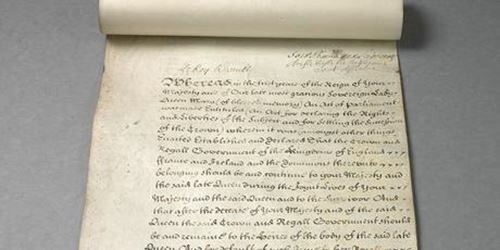 Le Roy le veult
Whereas in the first yeare of the Reign of Your
Majesty and of Our late most gracious Sovereign Lady
Queen Mary (of blessed memory) An Act of Parliament
was made Intituled An Act for declaring the Rights
and Liberties of the Subject and for settling the Succession
of the Crown, wherein it was amongst other things
Enacted Established and Declared That the Crown and
Regall Government of the Kingdoms of England
France and Ireland and the Dominions thereunto
belonging should be and continue to Your Majesty and
the said late Queen during the Joynt Lives of Your
Majesty and the said Queen and to the Survivor And
that after the decease of Your Majesty and of the said
Queen the said Crown and Regall Government should
be and remain to the Heires of the body of the said late
Queen And for default of such Issue to her Royall